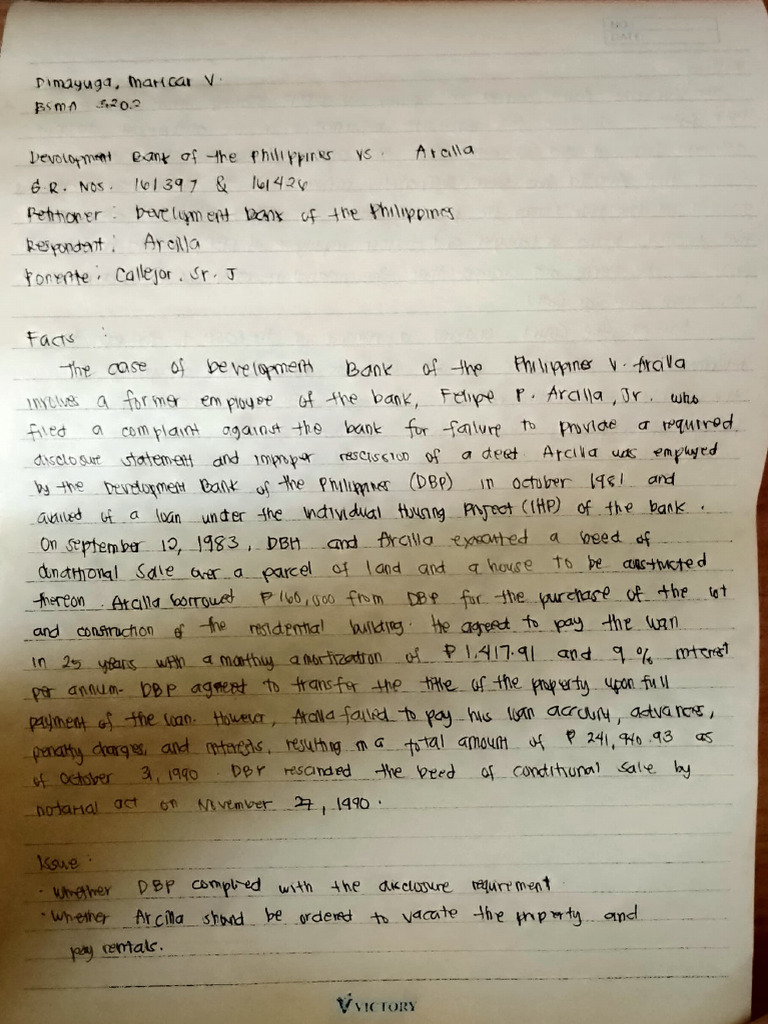 Dimayuga, Maricar V.
BSMA 3202
Development Bank of the Philippines vs. Arcilla
G.R. Nos. 161397 & 161426
Petitioner: Develyment Bank of the Philippines
Respondent: Arcilla
Ponente: Callejor. Sr. J
Facts :
The case of Development Bank of the Philippines V. Arcilla
involves a former employee of the bank, Felipe P. Arcilla, Jr. who
filed a complaint against the bank for failure to provide a required
disclosure statement and improper rescission of a deed. Arcilla was employed
by the Development Bank of the Philippines (DBP) in October 1981 and
availed of a loan under the Individual Housing Project (IHP) of the bank.
On September 12, 1983, DBH and Arcilla executed a Deed of
Conditional Sale over a parcel of land and a house to be constructed
thereon. Arcilla borrowed ₱160,000 from DBP for the purchase of the lot
and construction of the residential building. He agreed to pay the loan
in 25 years with a monthly amortization of ₱1,417.91 and 9% interest
per annum. DBP agreed to transfer the title of the property upon full
payment of the loan. However, Arcilla failed to pay his loan account, advances,
penalty charges, and interests, resulting in a total amount of ₱ 241,940.93 as
of October 31, 1990. DBP rescinded the Deed of conditional sale by
notarial act on November 27, 1990.
Issue:
• Whether DBP complied with the disclosure requirement
• Whether Arcilla should be ordered to vacate the property and
pay rentals.
VICTORY